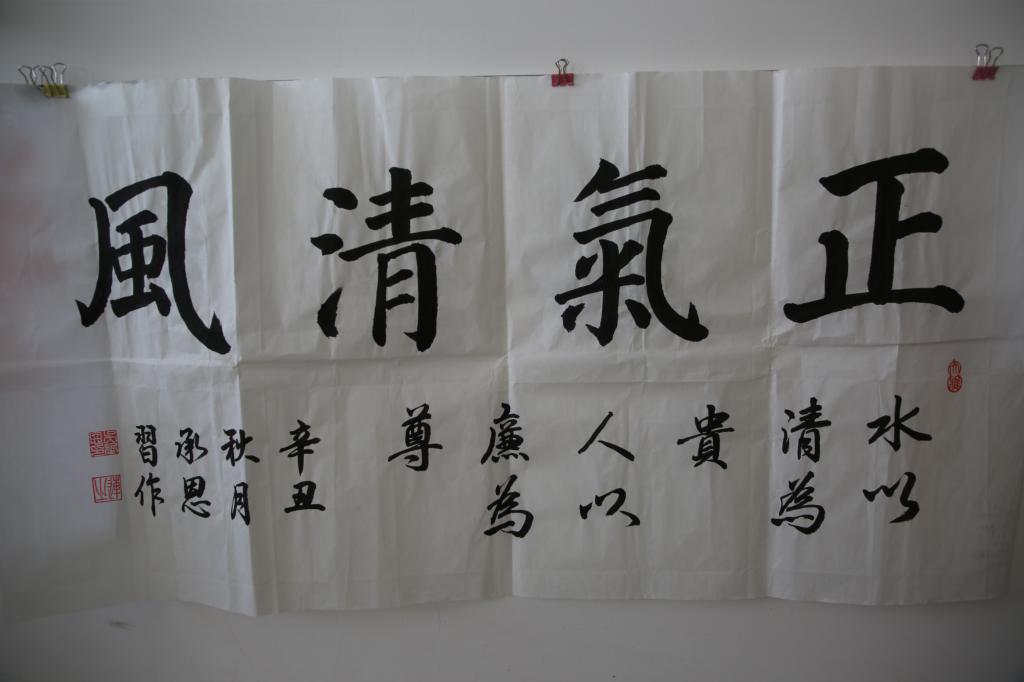 正氣清風
水以
清為
貴
人以
廉為
尊
辛丑
秋月
承恩
習作